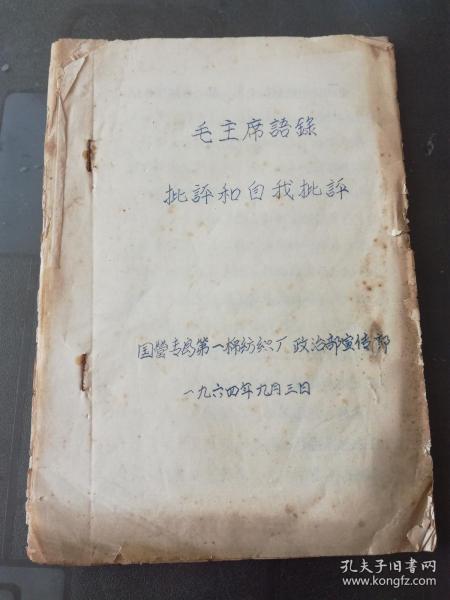 毛主席語錄
批評和自我批評
国營青島第一棉紡织厂政治部宣传部
一九六四年九月三日
孔夫子旧书网
www.kongfz.com